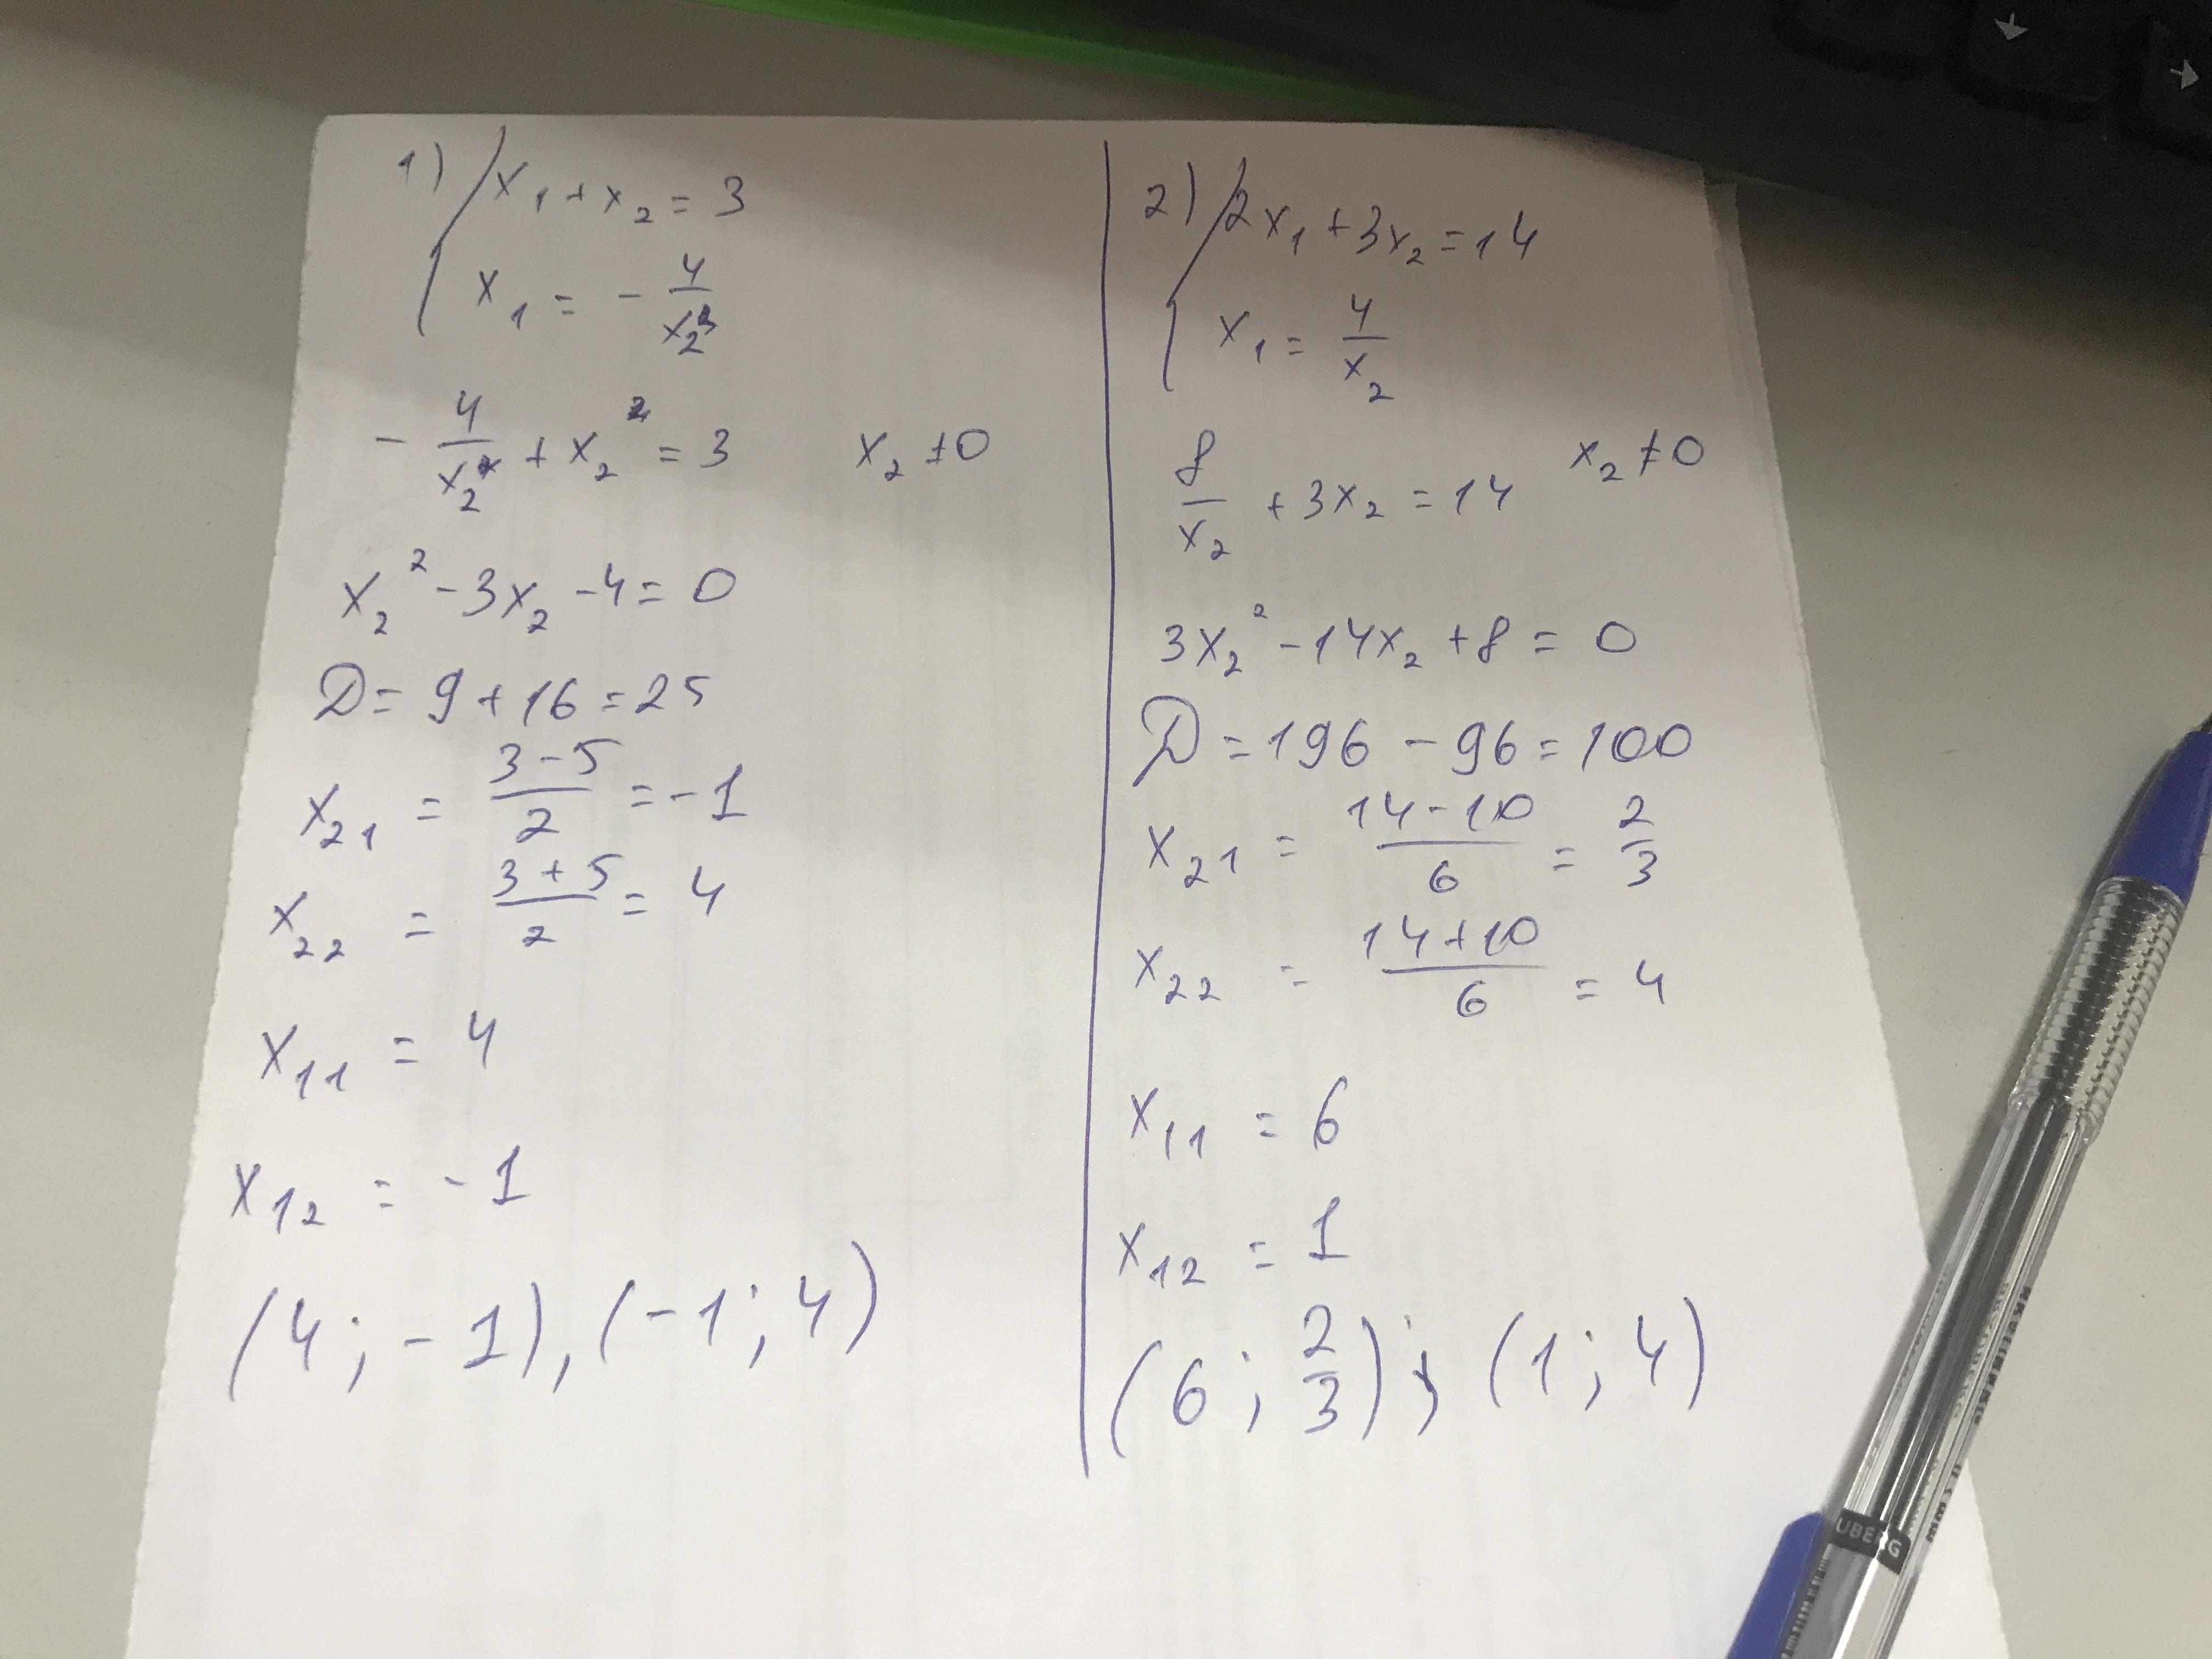 1) x₁ + x₂ = 3
x₁ = - 4/x₂
- 4/x₂ + x₂² = 3 x₂ ≠ 0
x₂² - 3x₂ - 4 = 0
D = 9 + 16 = 25
x₂₁ = (3 - 5)/2 = -1
x₂₂ = (3 + 5)/2 = 4
x₁₁ = 4
x₁₂ = -1
(4; -1), (-1; 4)
2) 2x₁ + 3x₂ = 14
x₁ = 4/x₂
8/x₂ + 3x₂ = 14 x₂ ≠ 0
3x₂² - 14x₂ + 8 = 0
D = 196 - 96 = 100
x₂₁ = (14 - 10)/6 = 2/3
x₂₂ = (14 + 10)/6 = 4
x₁₁ = 6
x₁₂ = 1
(6; 2/3); (1; 4)